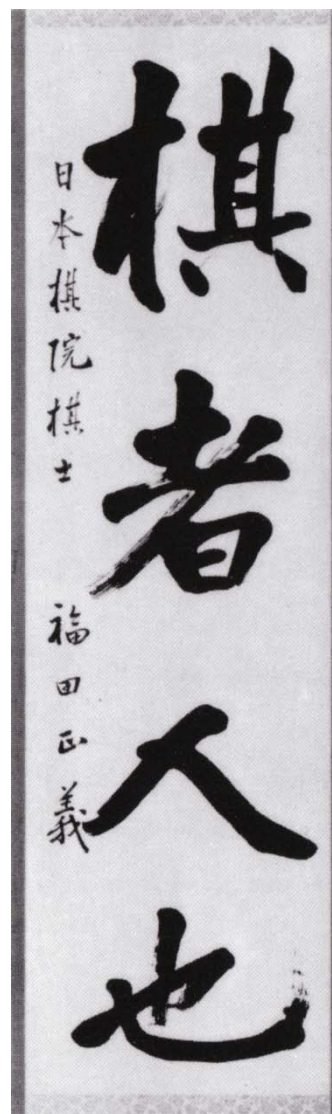 棋者人也
日本棋院棋士 福田正義